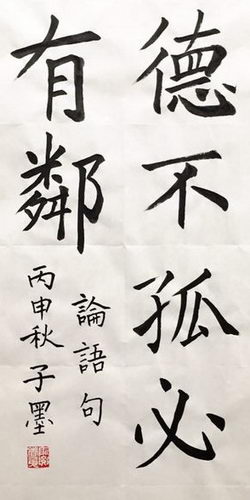 德不孤必
有鄰
論語句
丙申秋子墨